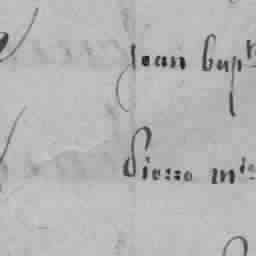 Jean bap^t
Pierre m^ie